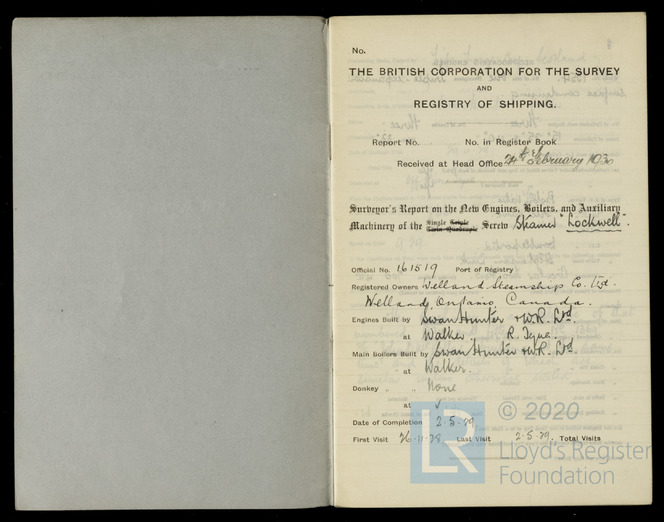 No.
THE BRITISH CORPORATION FOR THE SURVEY
AND
REGISTRY OF SHIPPING.
Report No. No. in Register Book
Received at Head Office 24th February 1930
Surveyor's Report on the New Engines, Boilers, and Auxiliary
Machinery of the Single Triple Twin Quadruple Screw Steamer "Lockwell".
Official No. 161519 Port of Registry
Registered Owners Welland Steamship Co. Ltd.
Welland, Ontario, Canada.
Engines Built by Swan Hunter & W.R. Ltd
at Walker, R. Tyne.
Main Boilers Built by Swan Hunter & W.R. Ltd.
at Walker.
Donkey " " None
at ✓
Date of Completion 2.5.29
First Visit 26-11-28 Last Visit 2.5.29. Total Visits
© 2020
LR
Lloyd's Register
Foundation